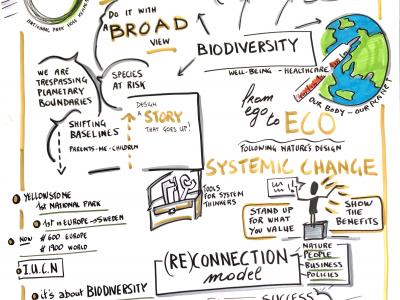 DO IT WITH
A BROAD
VIEW
BIODIVERSITY
WELL-BEING - HEALTHCARE
OUR BODY - OUR PLANET
WE ARE
TRESPASSING
PLANETARY
BOUNDARIES
SPECIES
AT RISK
SHIFTING
BASELINES
PARENTS-ME-CHILDREN
DESIGN
A STORY
THAT GOES UP!
from
ego
to ECO
FOLLOWING NATURE'S DESIGN
SYSTEMIC CHANGE
TOOLS
FOR SYSTEM
THINNERS
STAND UP
FOR WHAT
YOU VALUE
SHOW
THE
BENEFITS
YELLOWSTONE
1st NATIONAL PARK
1st in EUROPE → SWEDEN
NOW # 600 EUROPE
# 1900 WORLD
I.U.C.N
(RE)CONNECTION
model
NATURE
PEOPLE
BUSINESS
POLICIES
it's about BIODIVERSITY
SUCCESS